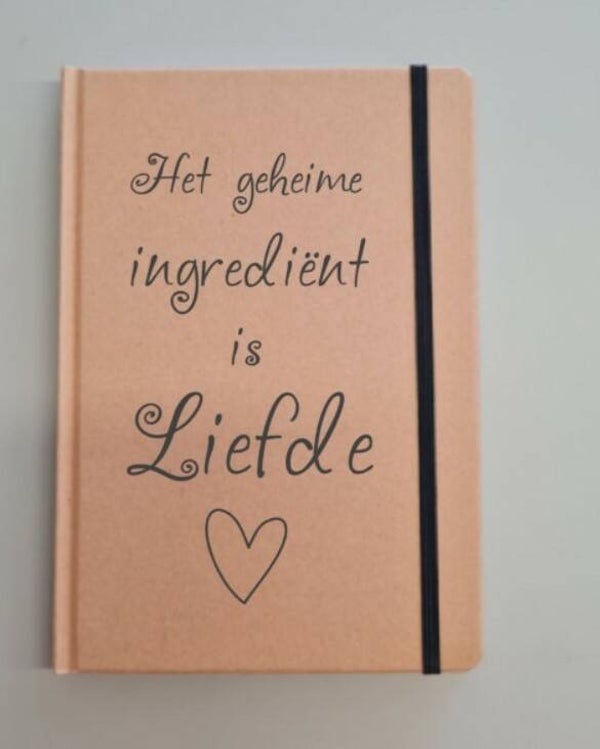 Het geheime
ingrediënt
is
Liefde